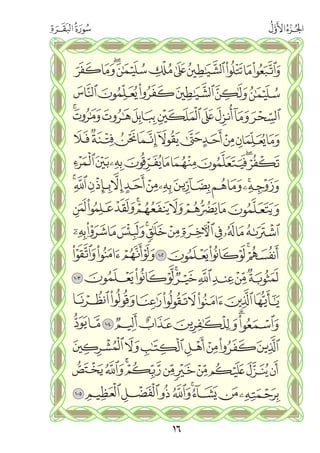 الجزء الأول سورة البقرة
واتبعوا ما تتلوا الشياطين على ملك سليمان وما كفر
سليمان ولكن الشياطين كفروا يعلمون الناس
السحر وما أنزل على الملكين ببابل هاروت وماروت
وما يعلمان من أحد حتى يقولا إنما نحن فتنة فلا
تكفر فيتعلمون منهما ما يفرقون به بين المرء
وزوجه وما هم بضارين به من أحد إلا بإذن الله
ويتعلمون ما يضرهم ولا ينفعهم ولقد علموا لمن
اشتراه ما له في الآخرة من خلاق ولبئس ما شروا به
أنفسهم لو كانوا يعلمون ١٠٢ ولو أنهم آمنوا واتقوا
لمثوبة من عند الله خير لو كانوا يعلمون ١٠٣
يا أيها الذين آمنوا لا تقولوا راعنا وقولوا انظرنا
واسمعوا وللكافرين عذاب أليم ١٠٤ ما يود
الذين كفروا من أهل الكتاب ولا المشركين
أن ينزل عليكم من خير من ربكم والله يختص
برحمته من يشاء والله ذو الفضل العظيم ١٠٥
١٦